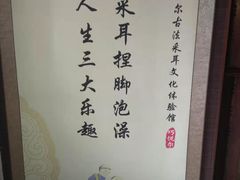 尔古法采耳文化体验馆
采耳捏脚泡澡
人生三大乐趣